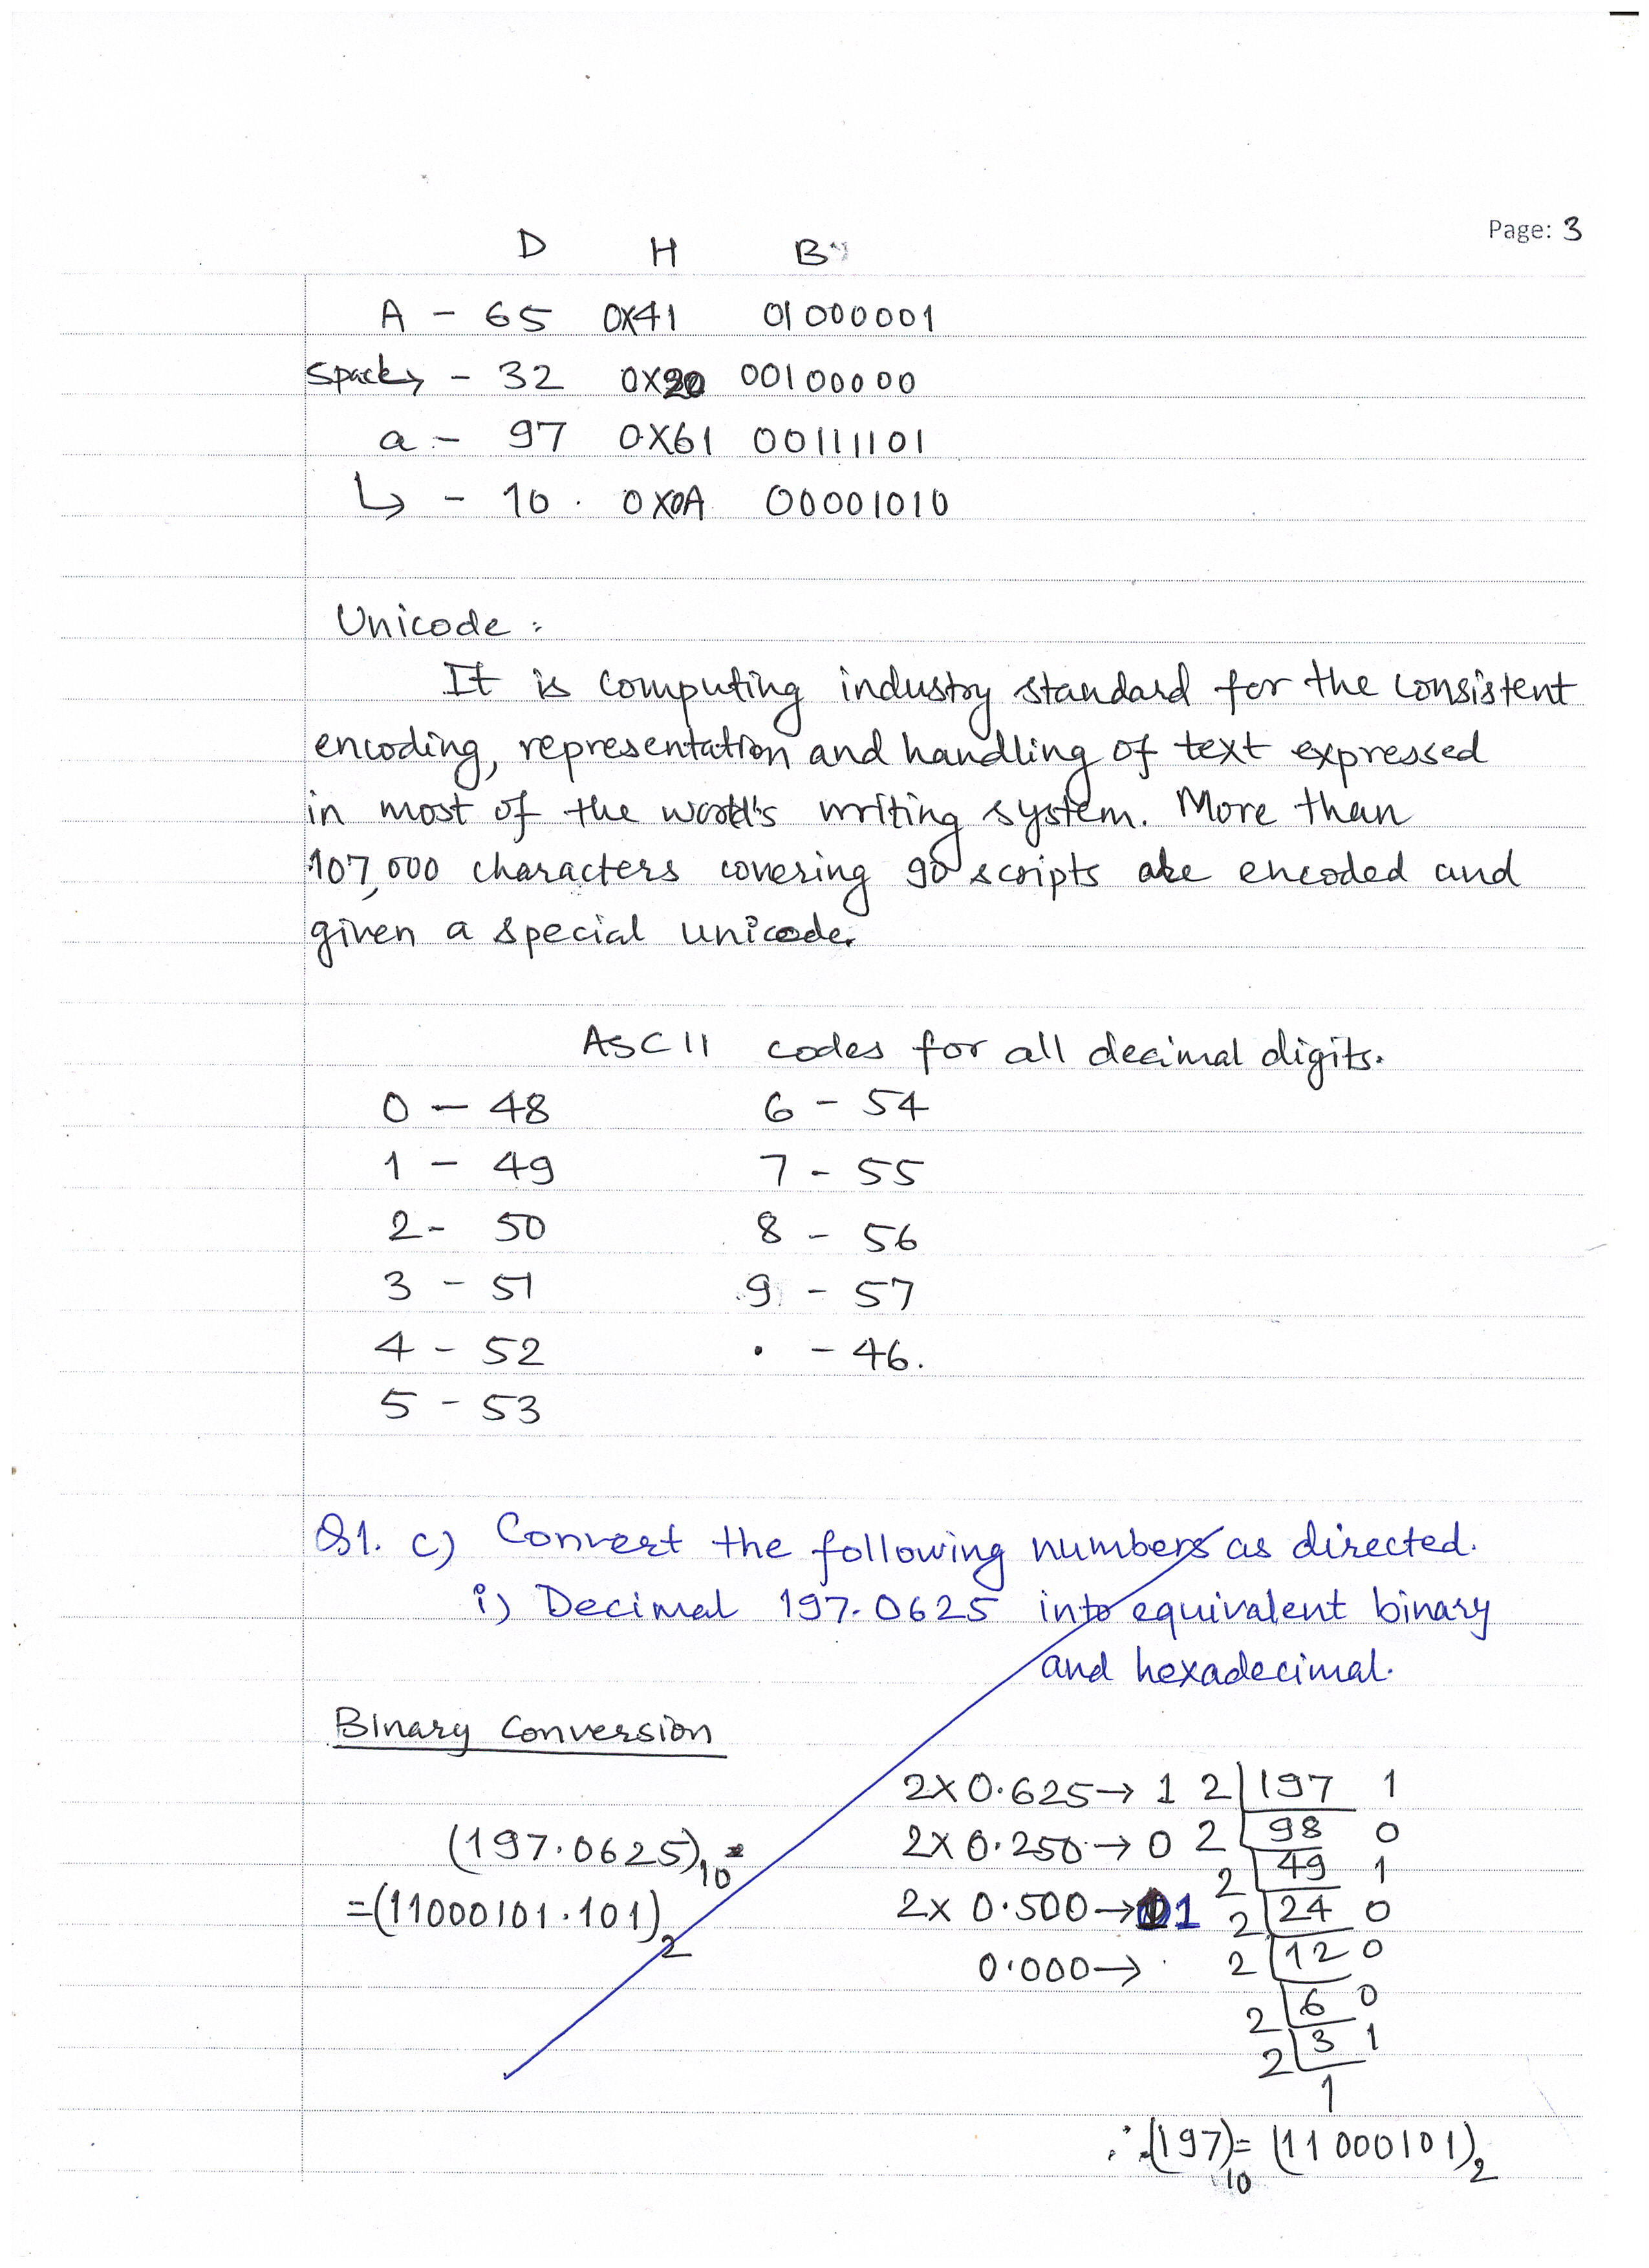 Page: 3
D H By
A - 65 0X41 01000001
Space - 32 0X20 00100000
a - 97 0X61 00111101
↳ - 10. 0X0A 00001010
Unicode :
It is computing industry standard for the consistent
encoding, representation and handling of text expressed
in most of the world's writing system. More than
107,000 characters covering 90 scripts are encoded and
given a special unicode.
ASCII codes for all decimal digits.
0 - 48 6 - 54
1 - 49 7 - 55
2 - 50 8 - 56
3 - 51 9 - 57
4 - 52 . - 46.
5 - 53
Q1. c) Convert the following numbers as directed.
i) Decimal 197.0625 into equivalent binary
and hexadecimal.
Binary Conversion
2X0.625→ 1 2 197 1
(197.0625)10 = 2X0.250→ 0 2 98 0
2 49 1
=(11000101.101)2 2X 0.500→ 1 2 24 0
0.000→ 2 12 0
2 6 0
2 3 1
1
∴(197)10 = (11000101)2